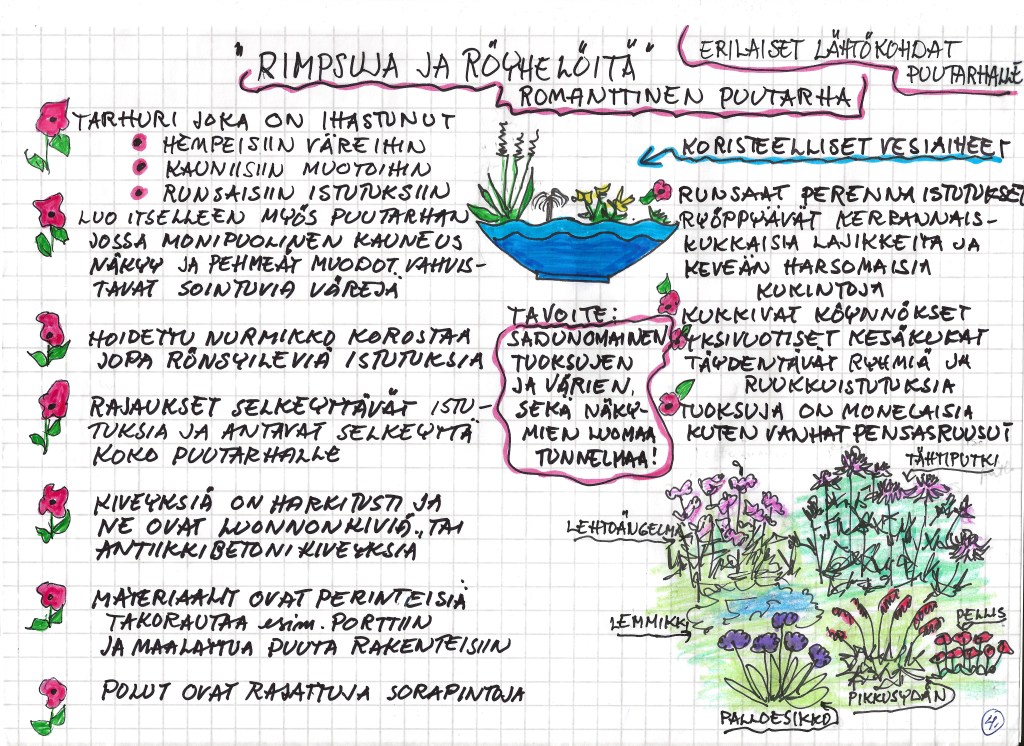 "RIMPSUJA JA RÖYHELÖITÄ"
ROMANTTINEN PUUTARHA
ERILAISET LÄHTÖKOHDAT
PUUTARHALLE
TARHURI JOKA ON IHASTUNUT
HEMPEISIIN VÄREIHIN
KAUNIISIIN MUOTOIHIN
RUNSAISIIN ISTUTUKSIIN
LUO ITSELLEEN MYÖS PUUTARHAN
JOSSA MONIPUOLINEN KAUNEUS
NÄKYY JA PEHMEÄT MUODOT VAHVIS-
TAVAT SOINTUVIA VÄREJÄ
HOIDETTU NURMIKKO KOROSTAA
JOPA RÖNSYILEVIÄ ISTUTUKSIA
RAJAUKSET SELKEYTTÄVÄT ISTU-
TUKSIA JA ANTAVAT SELKEYTTÄ
KOKO PUUTARHALLE
KIVEYKSIÄ ON HARKITUSTI JA
NE OVAT LUONNONKIVIÄ, TAI
ANTIIKKIBETONIKIVEYKSIA
MATERIAALIT OVAT PERINTEISIÄ
TAKORAUTAA esim. PORTTIIN
JA MAALATTUA PUUTA RAKENTEISIIN
POLUT OVAT RAJATTUJA SORAPINTOJA
TAVOITE:
SADUNOMAINEN
TUOKSUJEN
JA VÄRIEN,
SEKÄ NÄKY-
MIEN LUOMAA
TUNNELMAA!
KORISTEELLISET VESIAIHEET
RUNSAAT PERENNAISTUTUKSET
RYÖPPYÄVÄT KERRANNAIS-
KUKKAISIA LAJIKKEITA JA
KEVEÄN HARSOMAISIA
KUKINTOJA
KUKKIVAT KÖYNNÖKSET
YKSIVUOTISET KESÄKUKAT
TÄYDENTÄVÄT RYHMIÄ JA
RUUKKUISTUTUKSIA
TUOKSUJA ON MONELAISIA
KUTEN VANHAT PENSASRUUSUT
TÄHTIPUTKI
LEHTOÄNGELMÄ
LEMMIKKI
BELLIS
PIKKUSYDÄN
PALLOESIKKO
4.